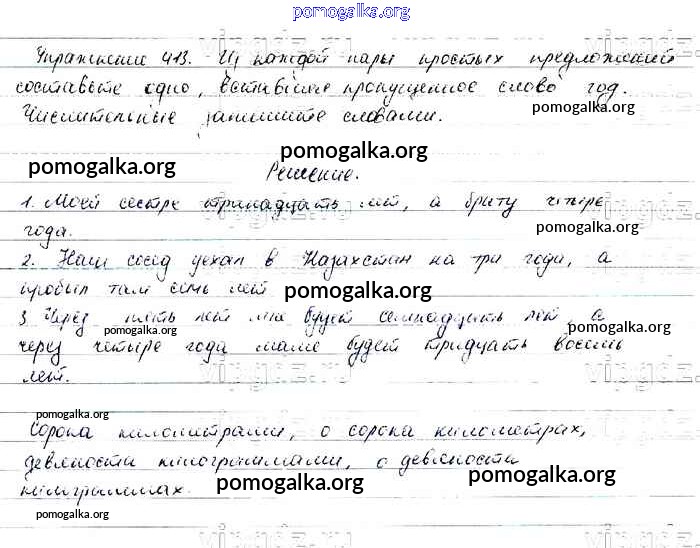 pomogalka.org
Упражнение 413. Из каждой пары простых предложений
составьте одно, вставляя пропущенное слово год.
pomogalka.org
Числительные запишите словами.
pomogalka.org
pomogalka.org
Решение.
1. Моей сестре тринадцать лет, а брату четыре
года.
pomogalka.org
2. Наш сосед уехал в Казахстан на три года, а
пробыл там есть лет
pomogalka.org
3. Через пять лет мне будет семнадцать лет, а
pomogalka.org
pomogalka.org
через четыре года маме будет тридцать восемь
лет.
vipgdz.ru
pomogalka.org
Сорока километрами, о сорока километрах,
pomogalka.org
девяноста килограммами, о девяноста
килограммах.
pomogalka.org
pomogalka.org
pomogalka.org
vipgdz.ru